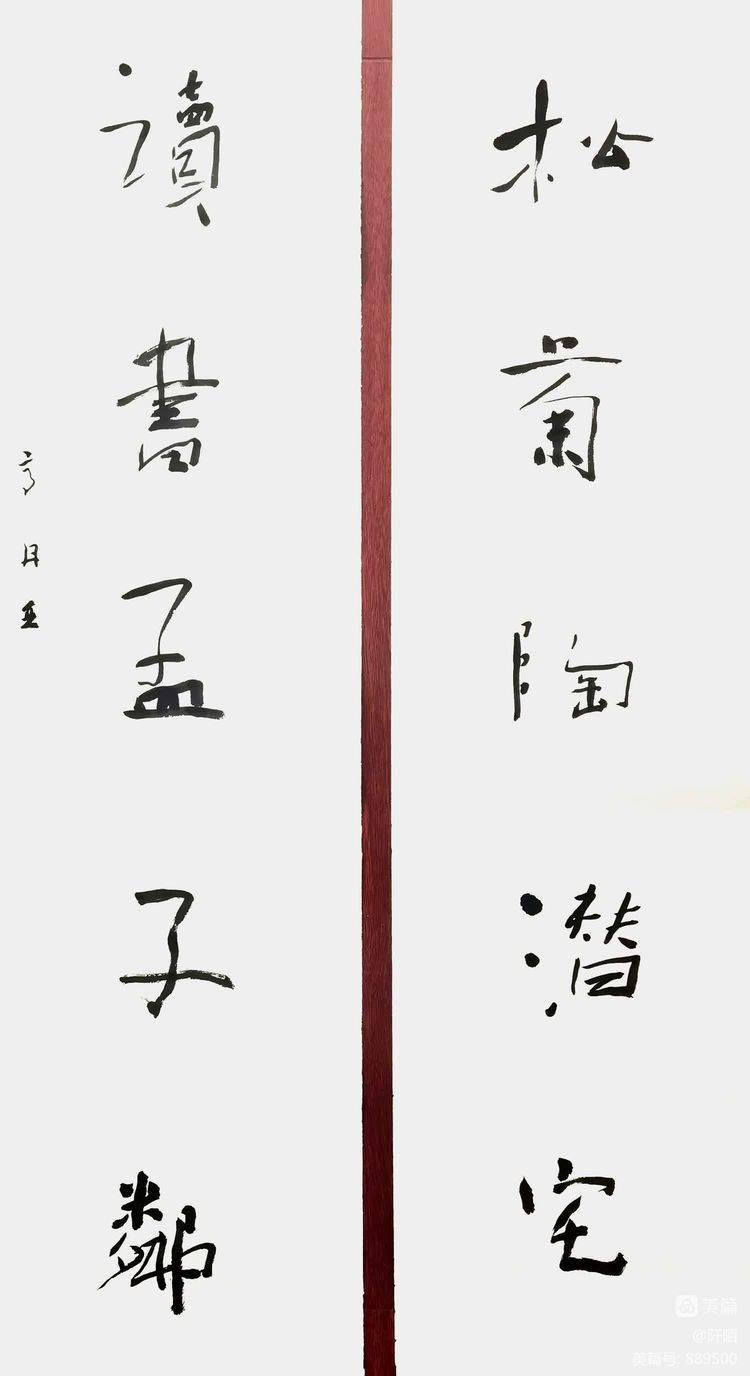 松菊陶潜宅
讀書孟子鄰
美篇
@阡陌
美篇号: 889500